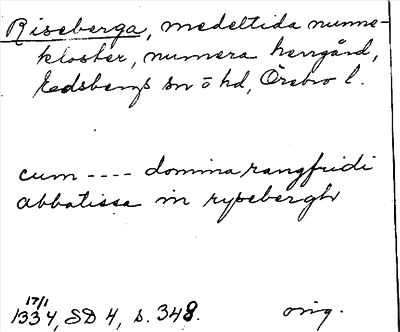 Riseberga, medeltida nunne-
kloster, numera herrgård,
Edsbergs sn o hd, Örebro l.
cum ---- domina rangfridi
abbatissa in rysebergh
17/1
1334, SD 4, s. 348.   orig.